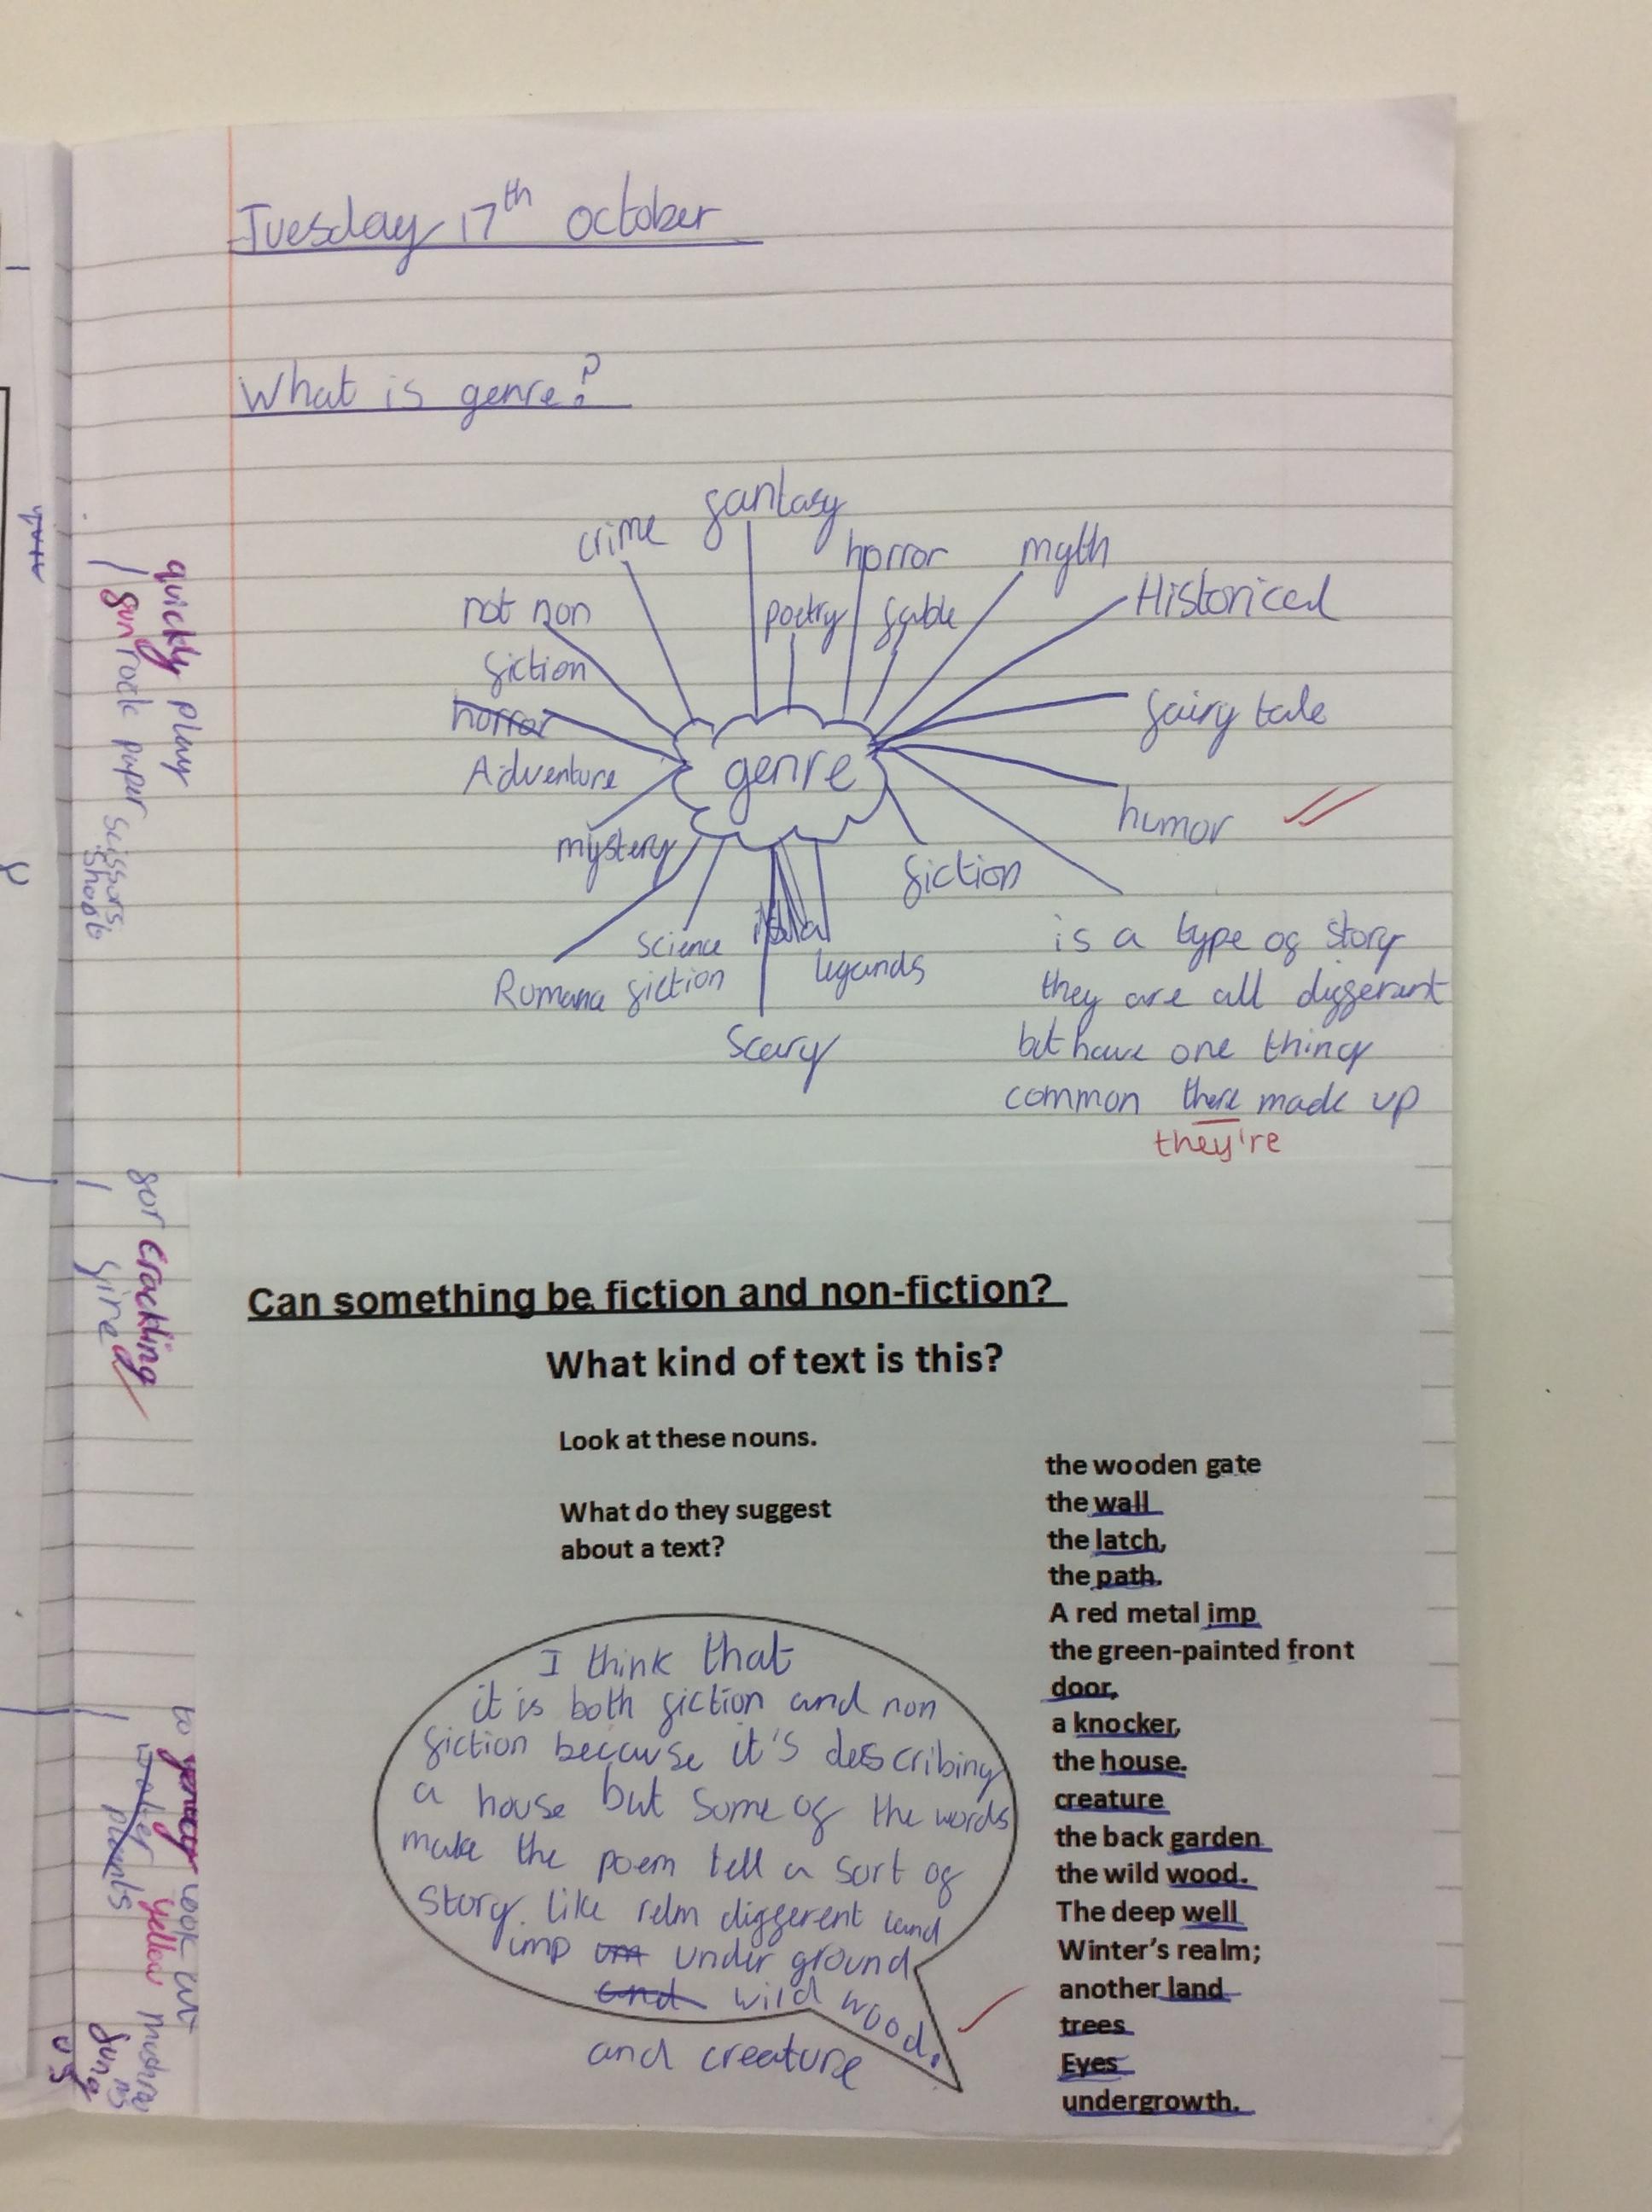 Tuesday 17th October
What is genre?
crime
fantasy
horror
myth
Historical
not non
fiction
poetry
fable
horror
Adventure
genre
fairy tale
humor
mystery
fiction
Science
fiction
legands
Romance
Scary
is a type of story
they are all differant
but have one thing
common there made up
they're
quickly play
fun rock paper scissors
shoot
for crackling
fire
look out
yellow
plants
Can something be fiction and non-fiction?
What kind of text is this?
Look at these nouns.
What do they suggest
about a text?
I think that
it is both fiction and non
fiction because it's describing
a house but some of the words
make the poem tell a sort of
story. like relm different land
imp um under ground
and wild wood.
and creature
the wooden gate
the wall
the latch,
the path.
A red metal imp
the green-painted front
door,
a knocker,
the house.
creature
the back garden
the wild wood.
The deep well
Winter's realm;
another land
trees
Eyes
undergrowth.